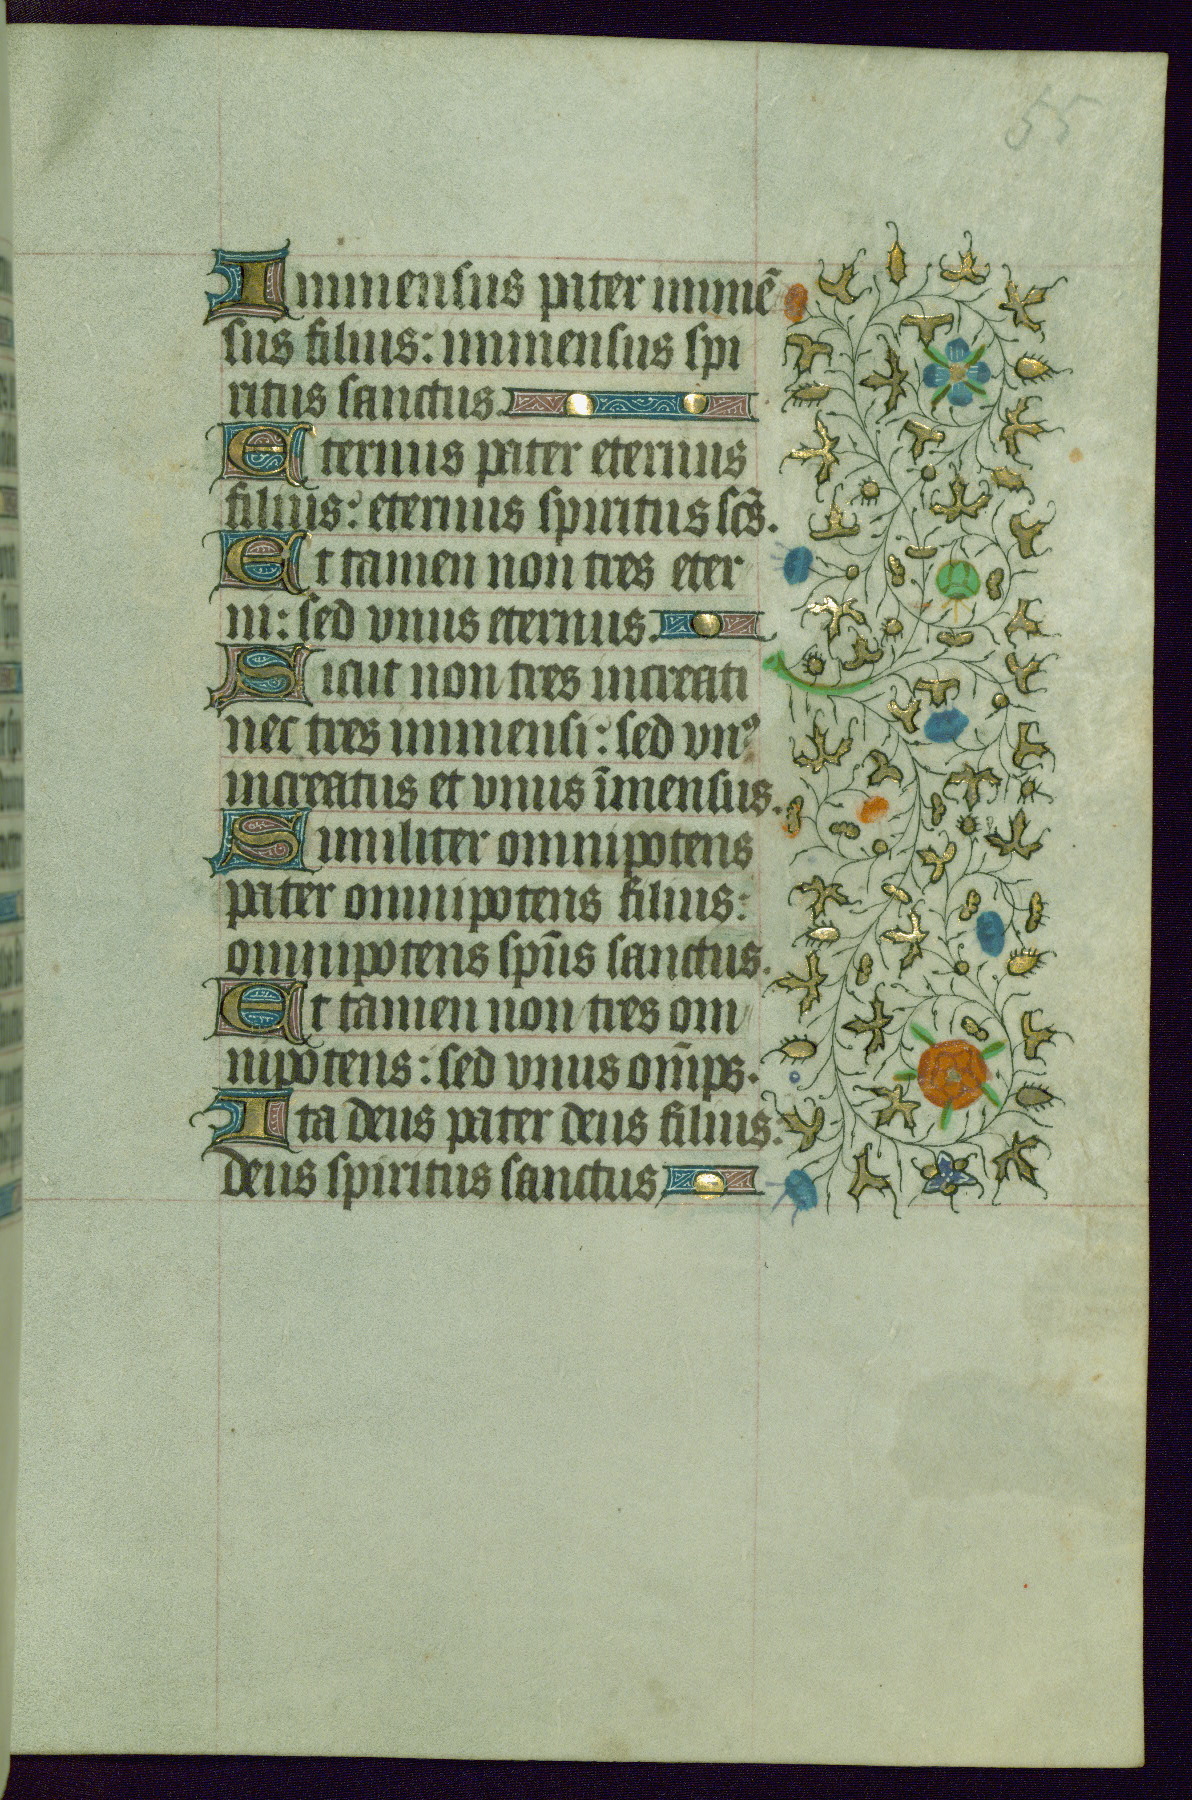 55
Immensus pater immē
sus filius: immensus spi
ritus sanctus.
Eternus pater eternus
filius: eternus spiritus sc̄s.
Et tamen non tres eter
ni: sed vnus eternus.
Sicut non tres increati
nec tres immensi: sed vnꝰ
increatus et vnus īmensus.
Similiter omnipotens
pater omnipotens filius:
omnipotens sp̄us sanctus.
Et tamen non tres om
nipotens: sed vnus om̄ps.
Ita deus pater deus filius:
deus spiritus sanctus